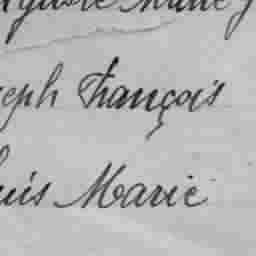 Marie
seph François
uis Marie